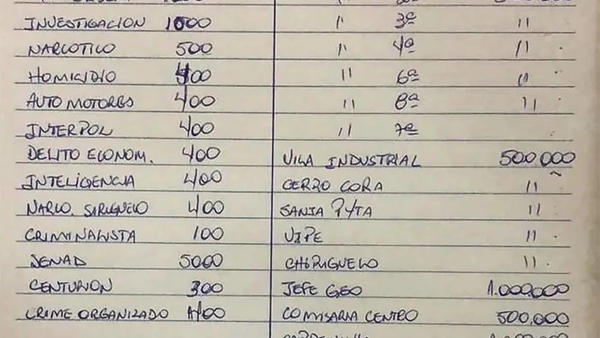 INVESTIGACION 1000 " 3ª "
NARCOTICO 500 " 4ª "
HOMICIDIO 400 " 6ª "
AUTOMOTORES 400 " 8ª "
INTERPOL 400 " 7ª
DELITO ECONOM. 400 VILA INDUSTRIAL 500.000
INTELIGENCIA 400 CERRO CORA "
NARCO. 400 SANTA "
CRIMINALISTA 100 "
SENAD 5000 CHIRIGUELO "
CENTURION 300 JEFE GEO 1.000.000
CRIME ORGANIZADO COMISARIA CENTRO 500.000